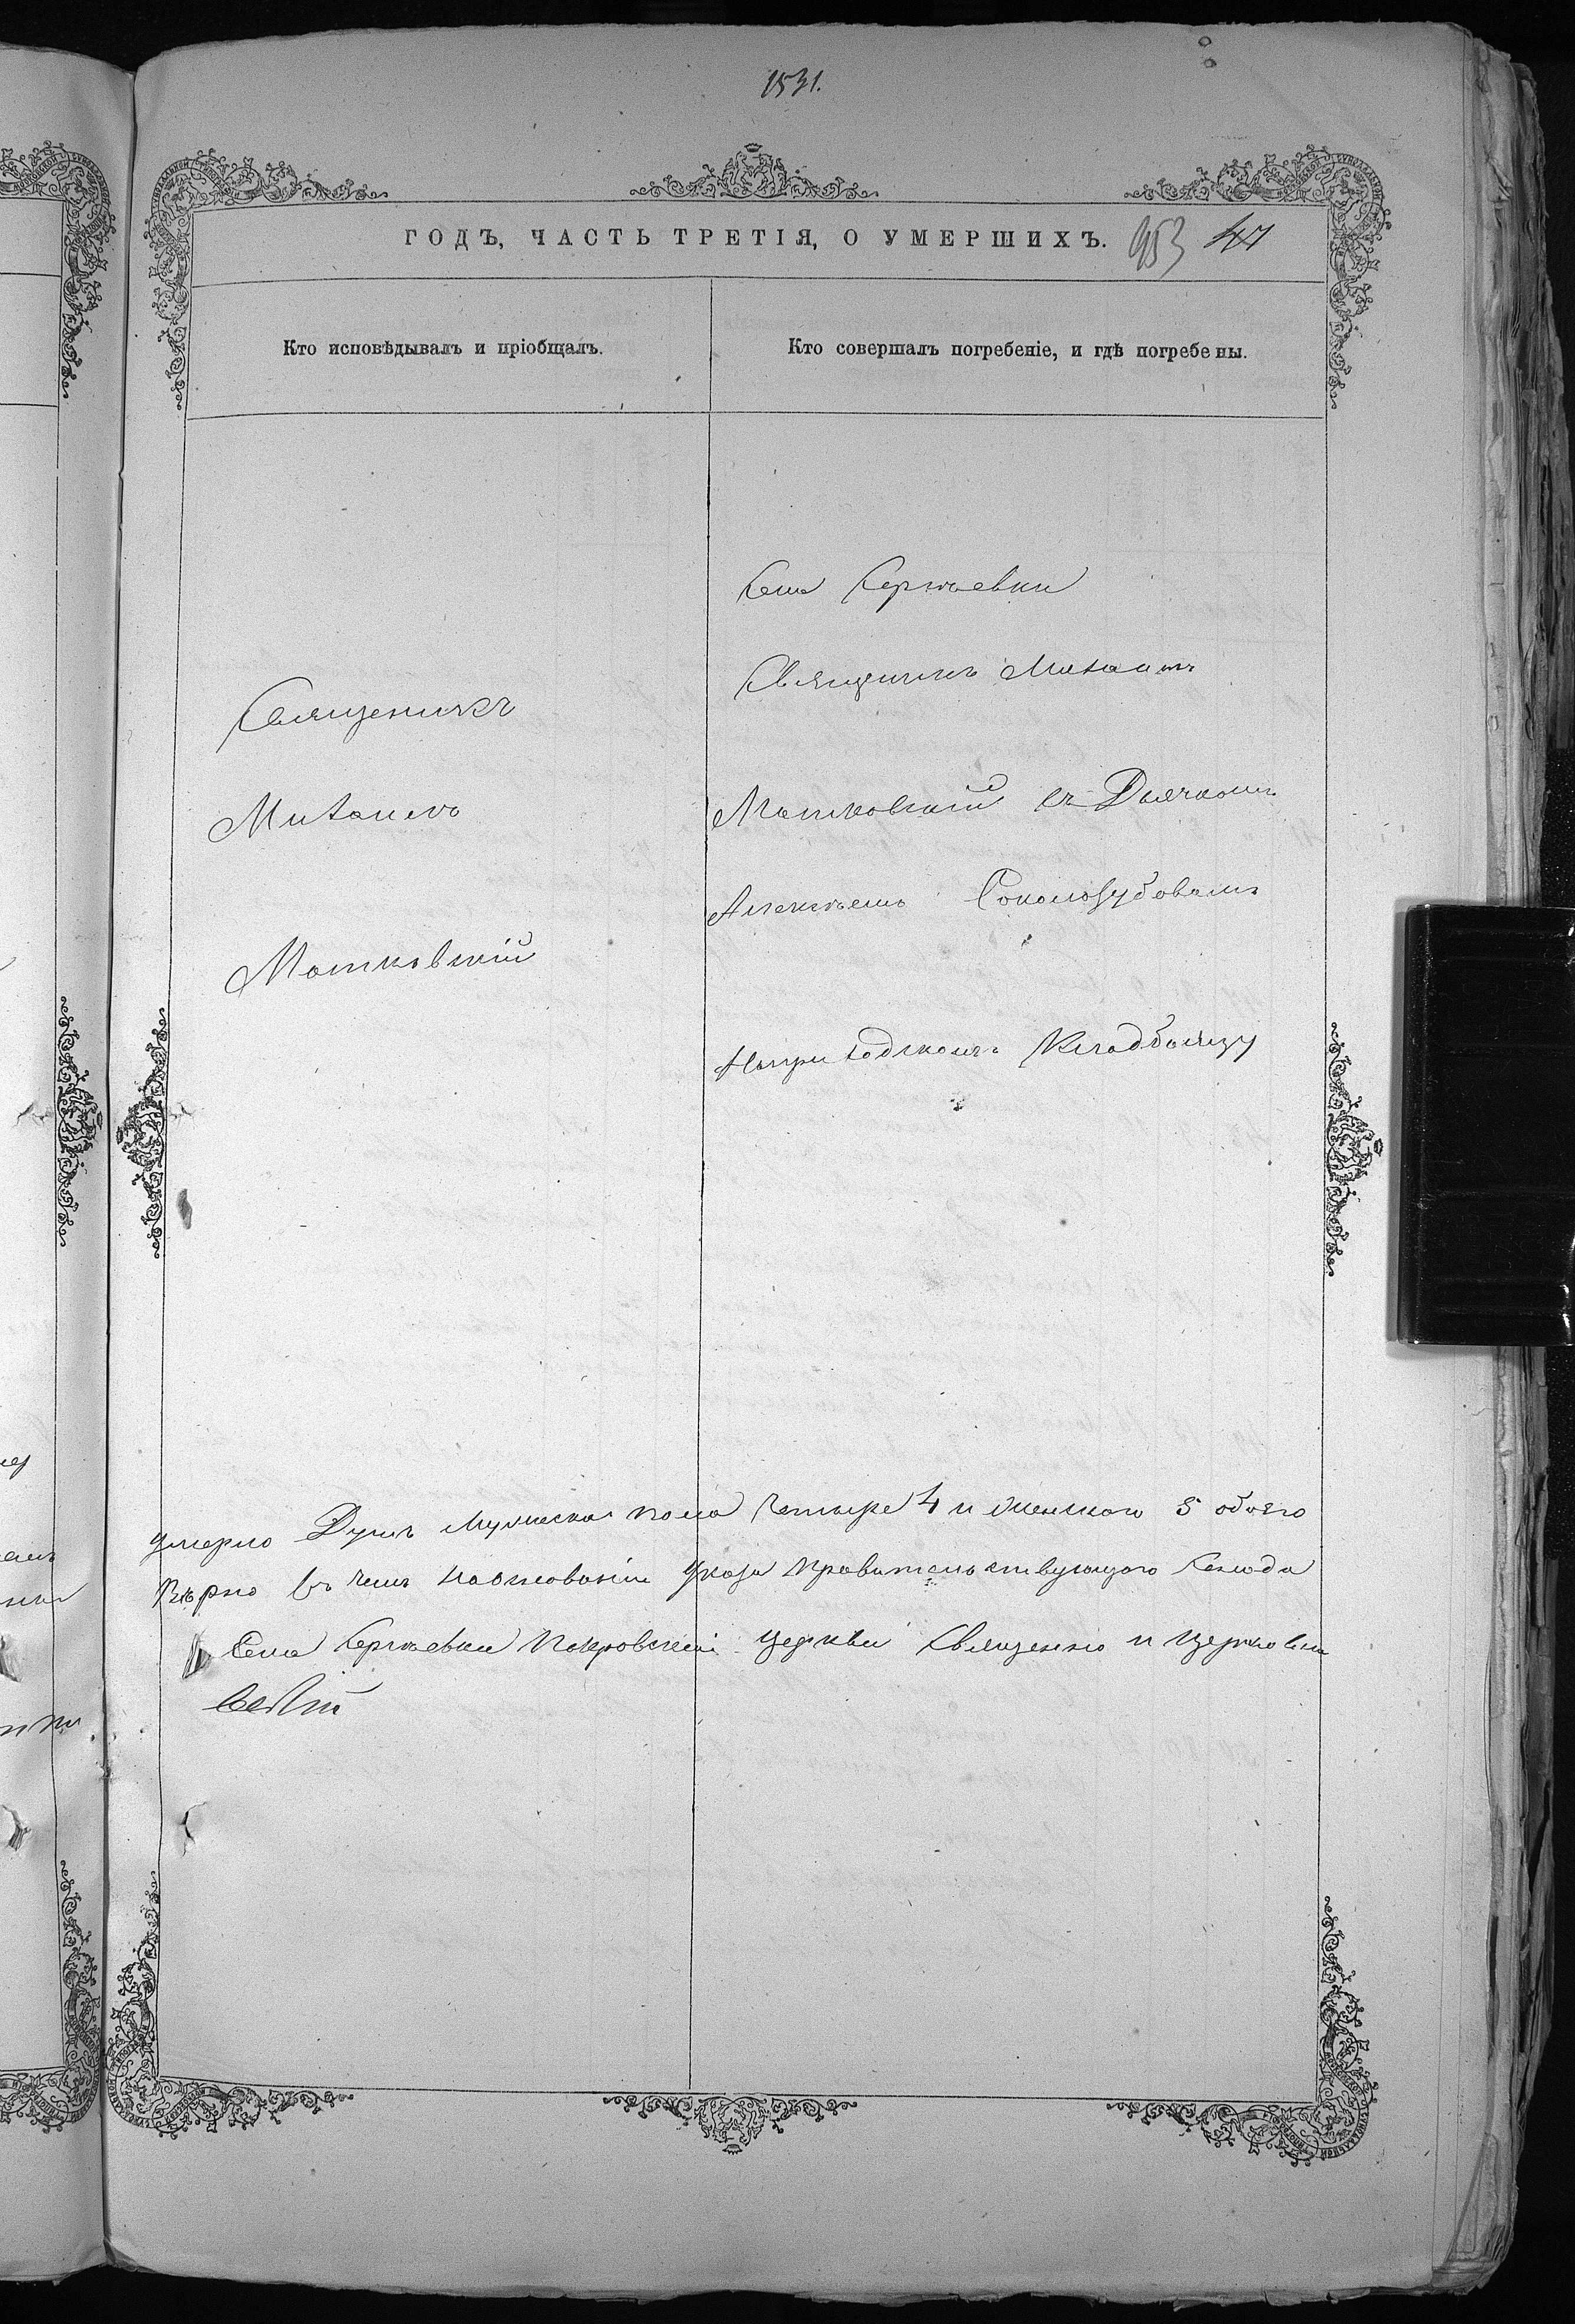 1531.
ГОДЪ, ЧАСТЬ ТРЕТІЯ, О УМЕРШИХЪ. 953 47
Кто исповѣдывалъ и пріобщалъ.
Кто совершалъ погребеніе, и гдѣ погребены.
Священикъ
Михаилъ
Матковскій
Села Сергѣевки
Священикъ Михаилъ
Матковскій съ Дьячкомъ
Алексѣемъ Соколозубовымъ
На приходскомъ Кладбищу
умерло Душъ Мужеска пола Четыре 4 и женскаго 5 обоего
Вѣрно въ чемъ на основаніи Указа Правительствующаго Сенода
Села Сергѣевки Покровской церкви Священно и Церковно